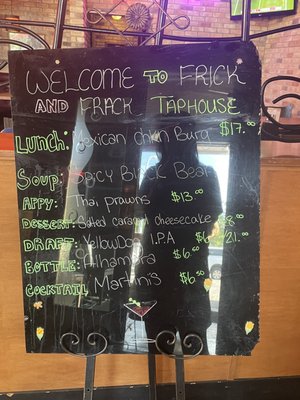 WELCOME TO FRICK
AND FRACK TAPHOUSE
LUNCH: Mexican Chkn Burg $17.00
SOUP: SPICY BLACK BEAN
APPY: Thai prawns $13.00
DESSERT: Salted caramel cheesecake $8.00
DRAFT: Yellow Dog I.P.A $6 21.00
BOTTLE: Alhambra $6.00
COCKTAIL Martini's $6.50